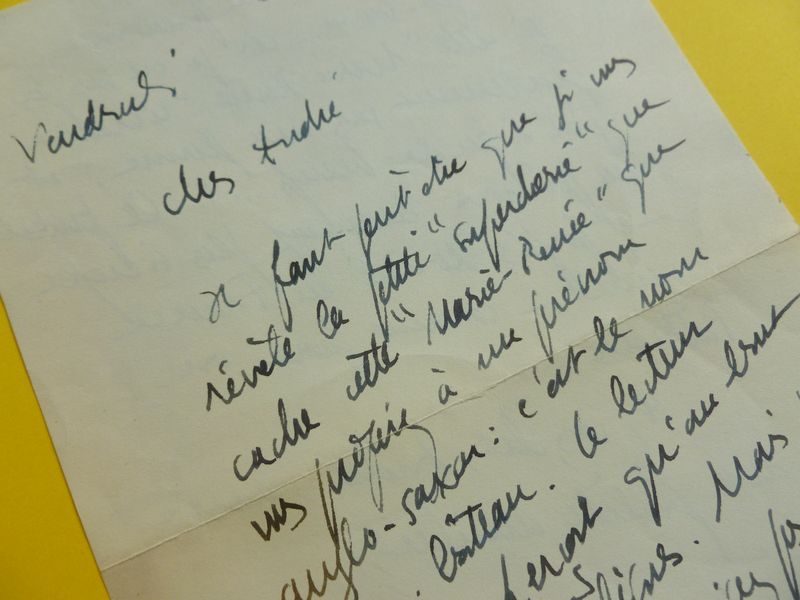 Vendredi
cher André
Il faut peut-être que je vous
révèle la petite "supercherie" que
cache cette "Marie-Renée" que
vous préférez à un prénom
anglo-saxon : c'est le nom
bateau. Le lecteur
qu'au bout
lignes. Mais